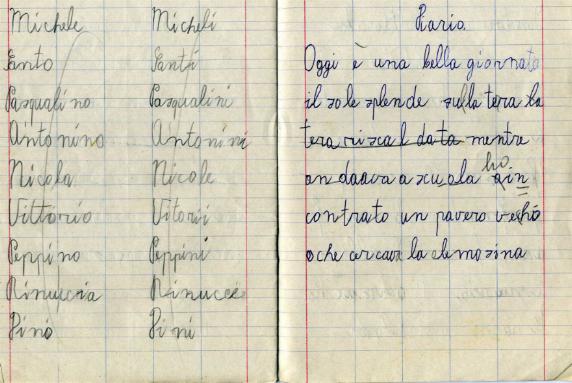 Michele Micheli
Santo Santi
Pasqualino Pasqualini
Antonino Antonini
Nicola Nicole
Vittorio Vitorii
Peppino Peppini
Rinuccia Rinuccie
Pino Pini
Diario.
Oggi è una bella giornata
il sole splende sulla tera la
tera riscaldata mentre
andaava a scuola ho
contrato un pavero vechio
o che cercava la elemosina